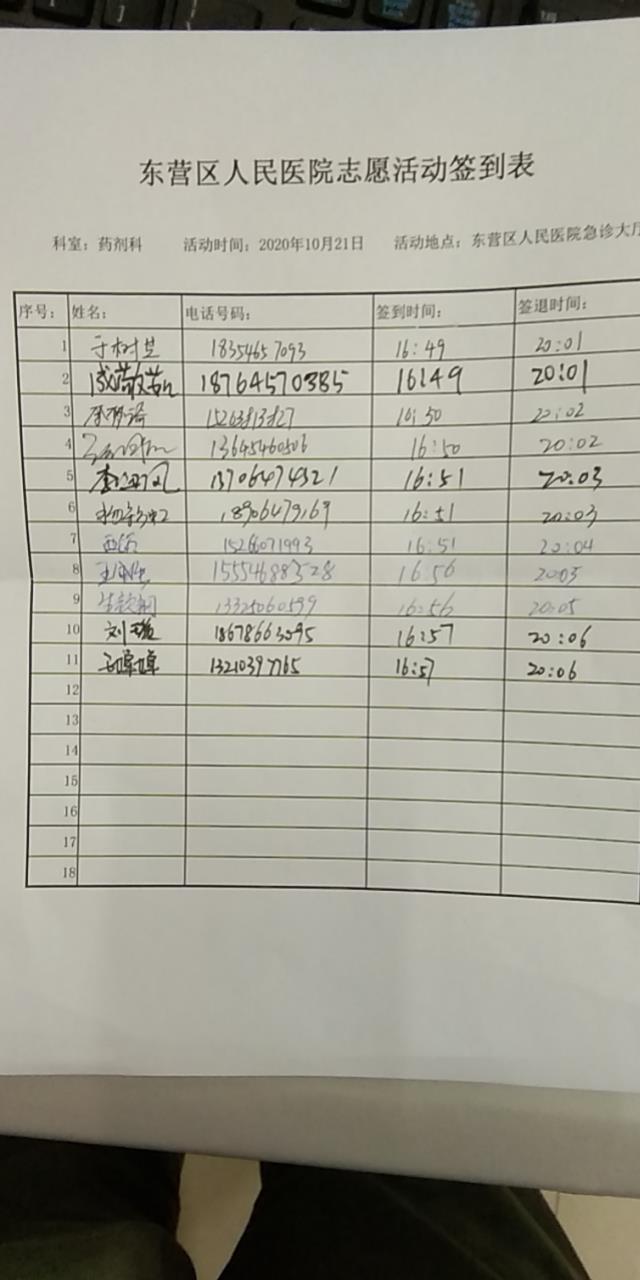 东营区人民医院志愿活动签到表
科室：药剂科 活动时间：2020年10月21日 活动地点：东营区人民医院急诊大厅
序号： 姓名： 电话号码： 签到时间： 签退时间：
1 于树芝 18354657093 16:49 20:01
2 18764570385 16:49 20:01
3 16:50 20:02
4 13645460506 16:50 20:02
5 13706474321 16:51 20:03
6 18906479169 16:51 20:03
7 15266071993 16:51 20:04
8 15554688328 16:56 20:05
9 13325060599 16:56 20:05
10 刘璇 18678663095 16:57 20:06
11 13210397765 16:57 20:06
12
13
14
15
16
17
18